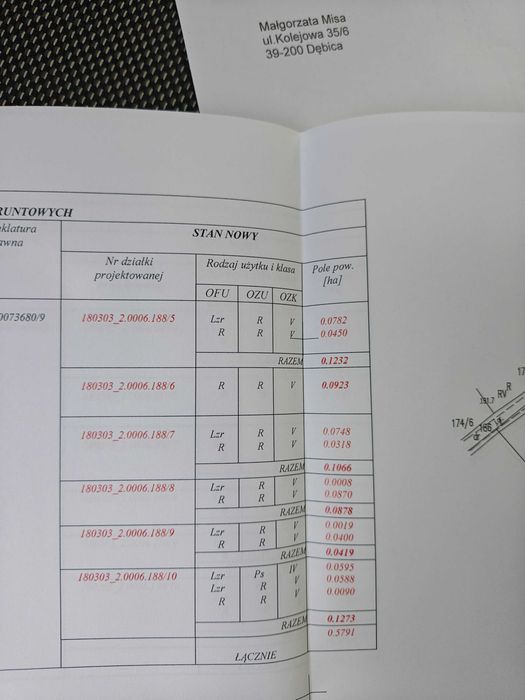 Małgorzata Misa
ul.Kolejowa 35/6
39-200 Dębica
RUNTOWYCH
klatura
awna
STAN NOWY
Nr działki
projektowanej
Rodzaj użytku i klasa
Pole pow.
[ha]
OFU OZU OZK
0073680/9
180303_2.0006.188/5 Lzr R V 0.0782
R R V 0.0450
RAZEM 0.1232
180303_2.0006.188/6 R R V 0.0923
180303_2.0006.188/7 Lzr R V 0.0748
R R V 0.0318
RAZEM 0.1066
180303_2.0006.188/8 Lzr R V 0.0008
R R V 0.0870
RAZEM 0.0878
180303_2.0006.188/9 Lzr R V 0.0019
R R V 0.0400
RAZEM 0.0419
180303_2.0006.188/10 Lzr Ps IV 0.0595
Lzr R V 0.0588
R R V 0.0090
RAZEM 0.1273
0.5791
ŁĄCZNIE
17
R
RV
174/6
166
dr